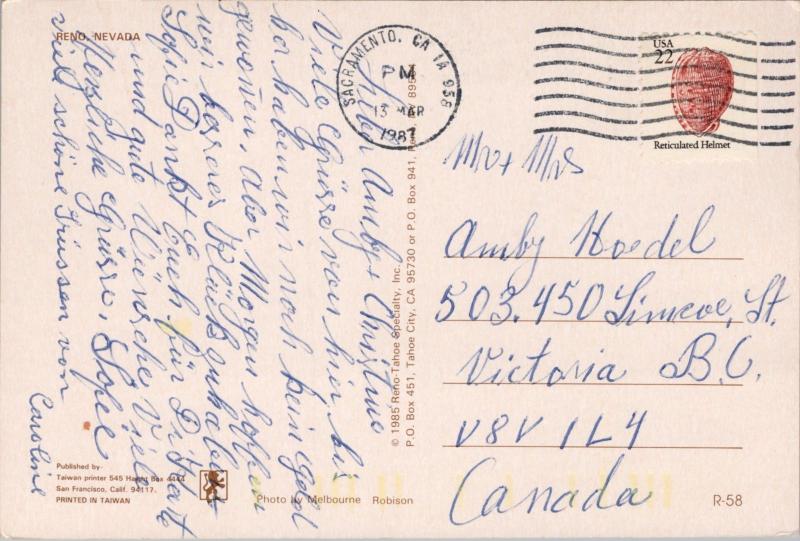 RENO, NEVADA
Lieber Amby + Christine
Viele Grüsse von hier bis
her haben wir noch kein Geld
gewonen, Aber Morgen hoffen
wir besseres Glück zu haben
Sofie Dankt Euch für Di Karte
und gute Wünsche Viele
Herzliche Grüsse,
viele schöne Grüssen von
Caroline
Published by
Taiwan printer 545 Haight Box 4444
San Francisco, Calif. 94117.
PRINTED IN TAIWAN
Photo by Melbourne Robison
© 1985 Reno-Tahoe Specialty, Inc.
P.O. Box 451, Tahoe City, CA 95730 or P.O. Box 941, Reno,
SACRAMENTO, CA 1A 958
PM
13 MAR
1987
USA
22
Reticulated Helmet
Mr + Mrs
Amby Hoedel
503.450 Simcoe, St.
Victoria B.C.
V8V 1L4
Canada
R-58